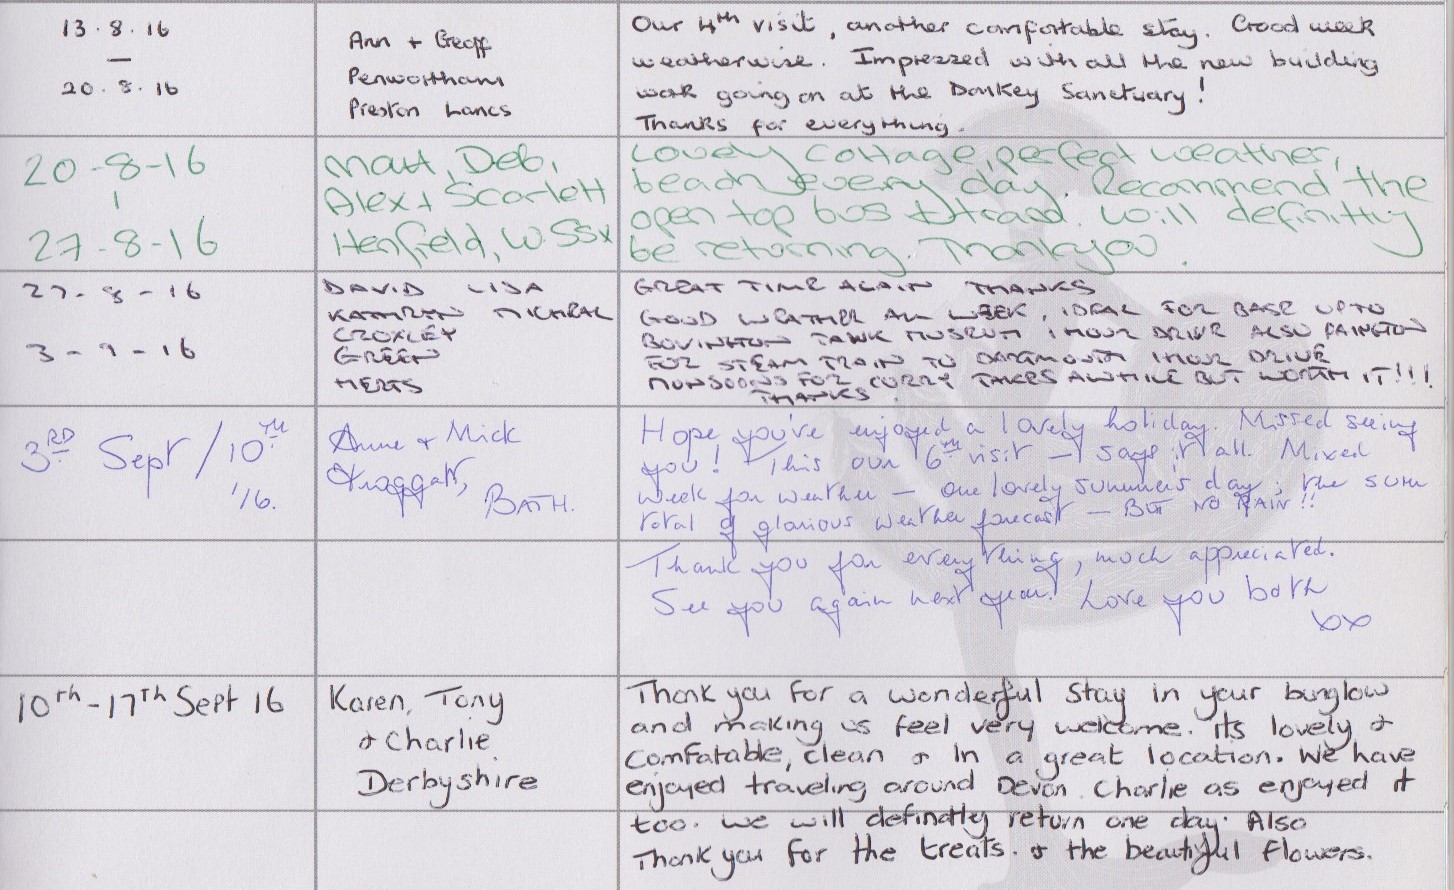 13.8.16
—
20.8.16
Ann + Geoff
Penwortham
Preston Lancs
Our 4th visit, another comfortable stay. Good week
weatherwise. Impressed with all the new building
work going on at the Donkey Sanctuary!
Thanks for everything.
20-8-16
|
27-8-16
Matt, Deb,
Alex + Scarlett
Henfield, W.SSx
Lovely cottage, perfect weather,
beach every day. Recommend the
open top bus + tram. Will definitly
be returning. Thankyou.
27-8-16
3-9-16
DAVID LISA
KATHRYN MICHEAL
CROXLEY
GREEN
HERTS
GREAT TIME AGAIN THANKS
GOOD WEATHER ALL WEEK, IDEAL FOR BASE UP TO
BOVINGTON TANK MUSEUM 1 HOUR DRIVE ALSO PAINGTON
FOR STEAM TRAIN TO DARTMOUTH 1 HOUR DRIVE
MONSOONS FOR CURRY TAKES AWHILE BUT WORTH IT!!!
THANKS.
3RD Sept / 10TH
'/16.
Anne + Mick
Froggatt,
BATH.
Hope you've enjoyed a lovely holiday. Missed seeing
you! This our 6th visit – says it all. Mixed
week for weather – one lovely summers day; the sum
total of glorious weather forecast – BUT NO RAIN!!
Thank you for everything, much appreciated.
See you again next year! Love you both
xx
10th-17th Sept 16
Karen, Tony
+ Charlie
Derbyshire
Thank you for a wonderful stay in your bunglow
and making us feel very welcome. its lovely +
Comfatable, clean + in a great location. We have
enjoyed traveling around Devon. Charlie as enjoyed it
too. we will definatly return one day. Also
Thank you for the treats. + the beautiful flowers.